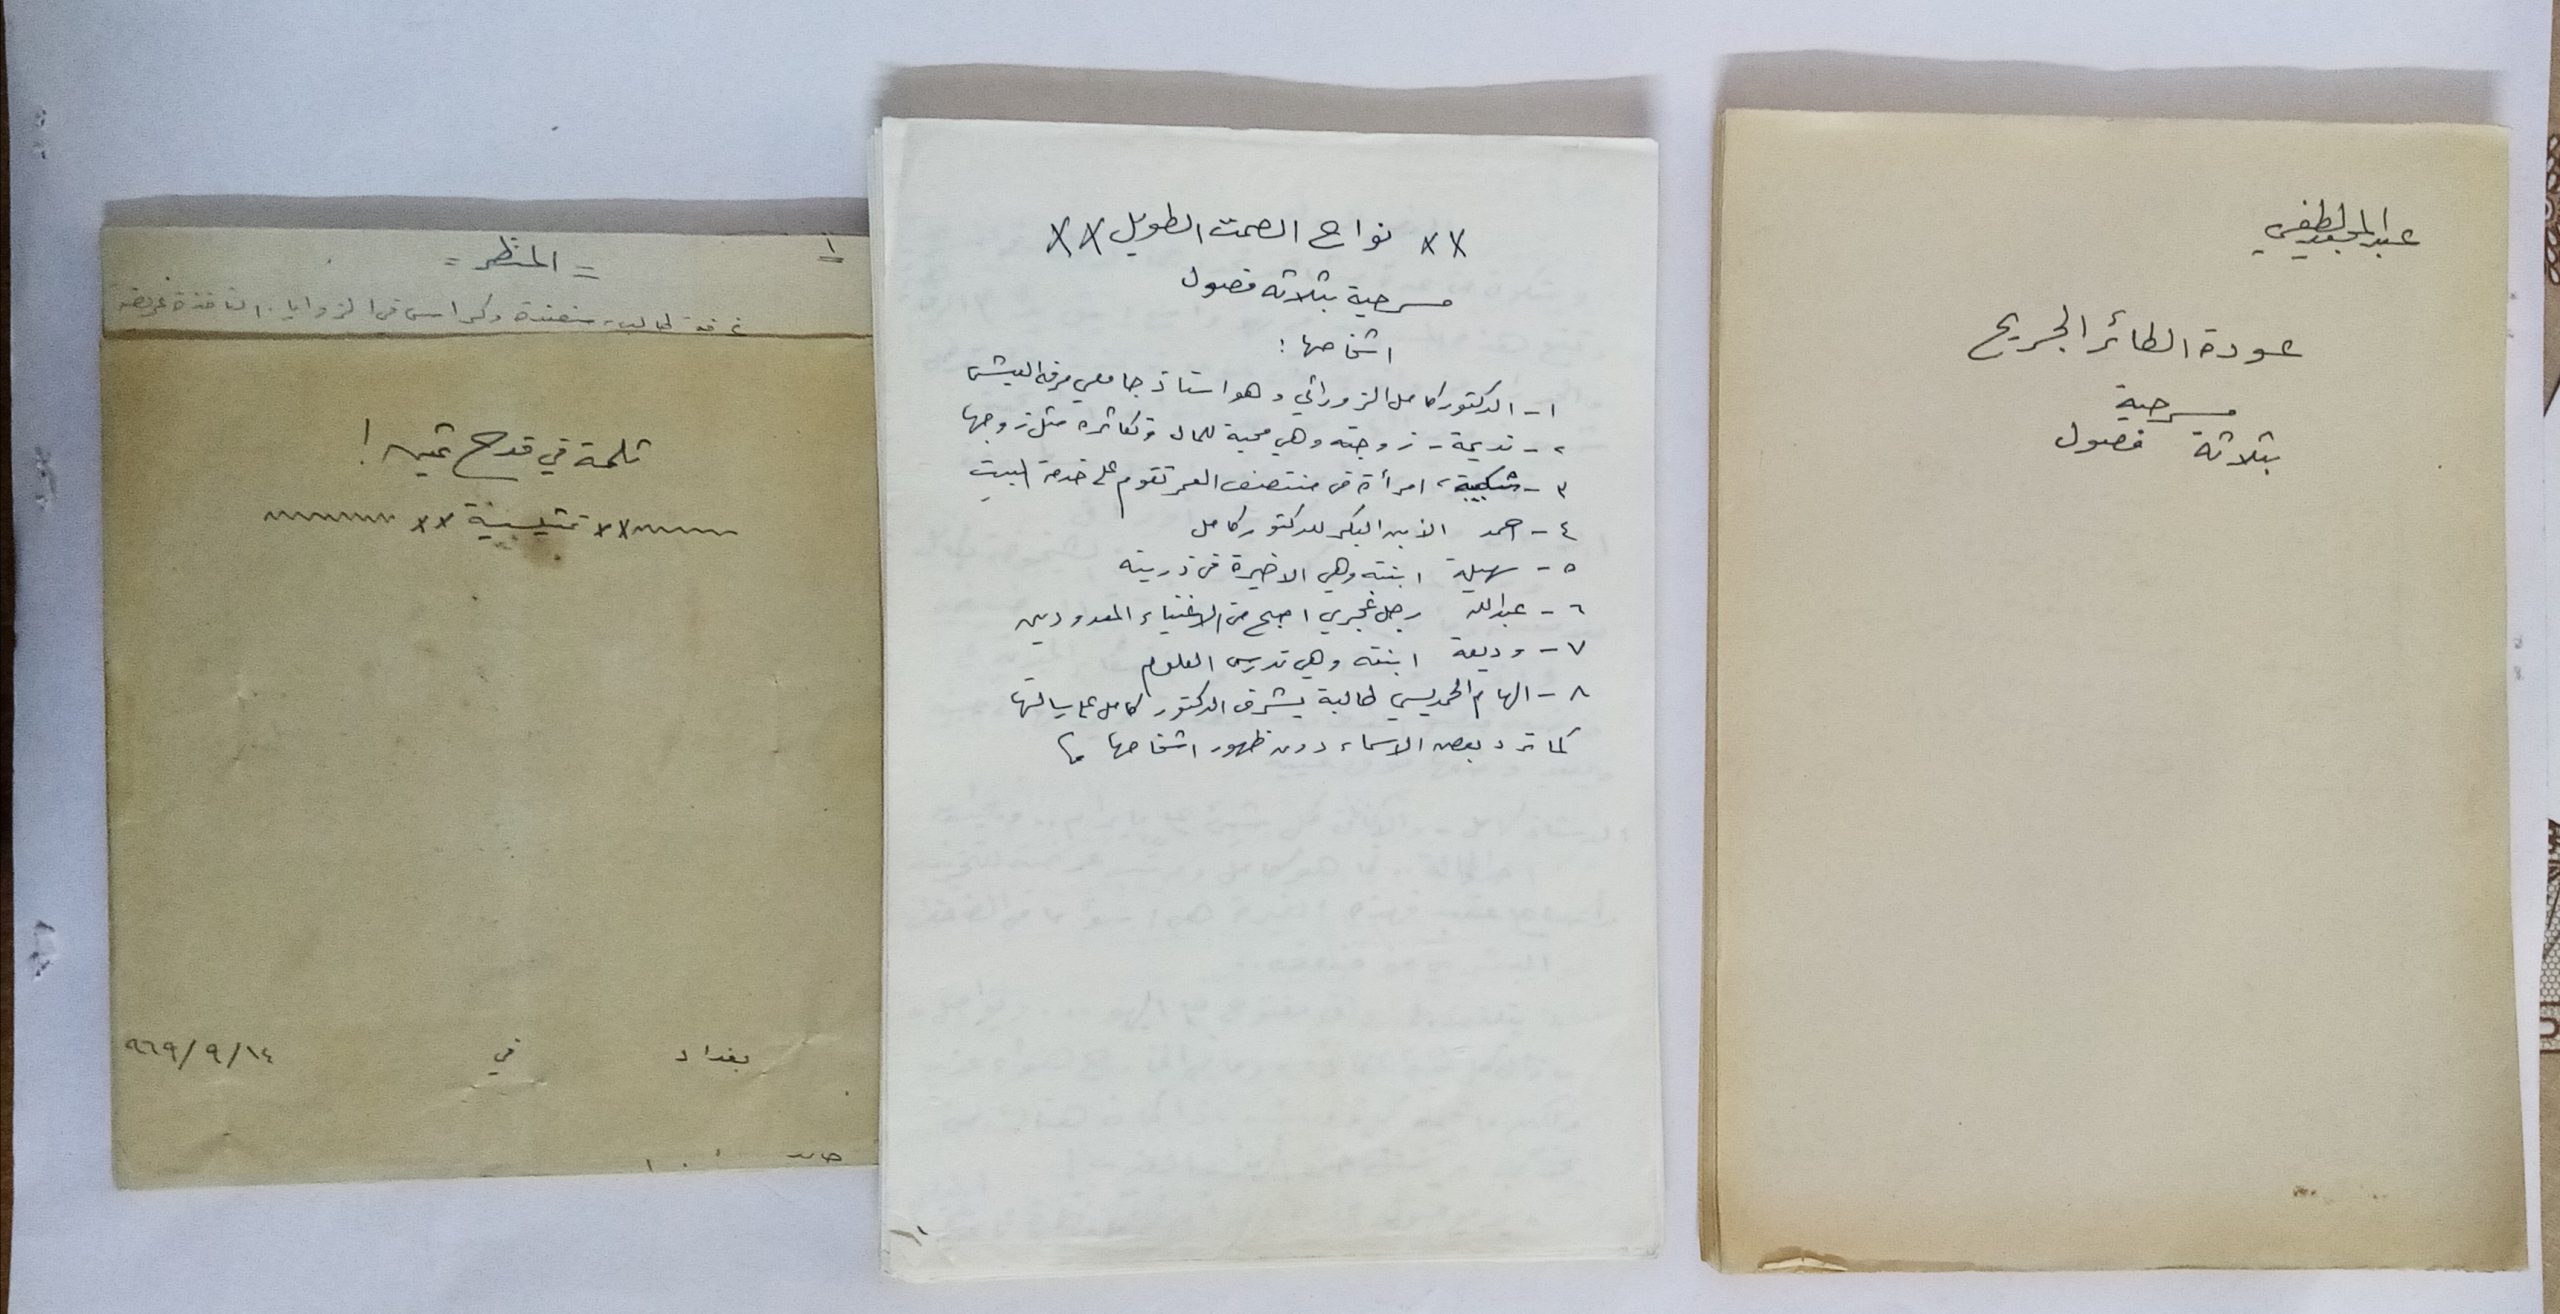 عبد المجيد لطفي
عودة الطائر الجريح
مسرحية
بثلاثة فصول
×× نواح الصمت الطويل ××
مسرحية بثلاثة فصول
اشخاصها :
١- الدكتور كامل الزوراني وهو استاذ جامعي مرفه العيش
٢- نديمة - زوجته وهي محبة للمال وتكاثره مثل زوجها
٣- شكيبة، امرأة في منتصف العمر تقوم على خدمة البيت
٤- احمد الابن البكر للدكتور كامل
٥- سهيلة ابنته وهي الاخيرة في ذريته
٦- عبدالله رجل غجري اصبح من الاغنياء المعدودين
٧- وديعة ابنته وهي تدرس العلوم
٨- الهام الحديسي طالبة يشرف الدكتور كامل على رسالتها
كما ترد بعض الاسماء دون ظهور اشخاصها
١
= المنظر =
غرفة طالب، منضدة وكراسي في الزوايا. النافذة عريضة
ثلمة في قدح ثمين !
×× تمثيلية ××
بغداد في ٩٦٩/٩/١٤